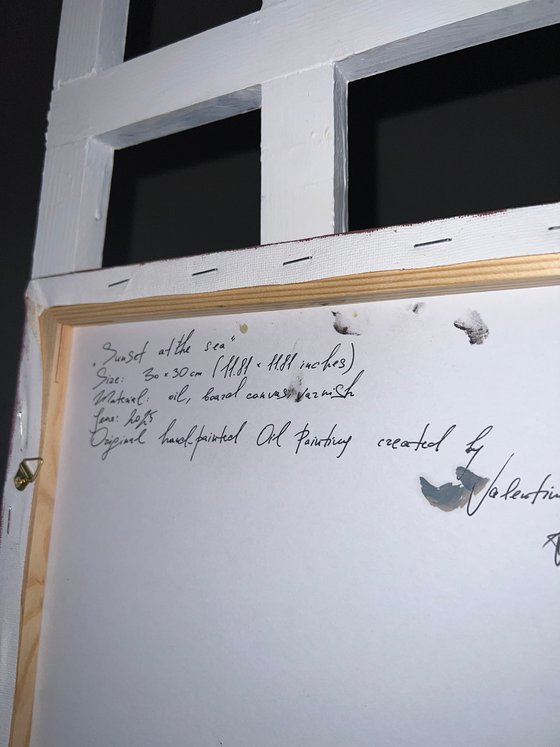 „Sunset at the sea"
Size: 30 × 30 cm (11.81 × 11.81 inches)
Material: oil, board canvas, varnish
2025
Original hand-painted Oil Painting created by
Valentin